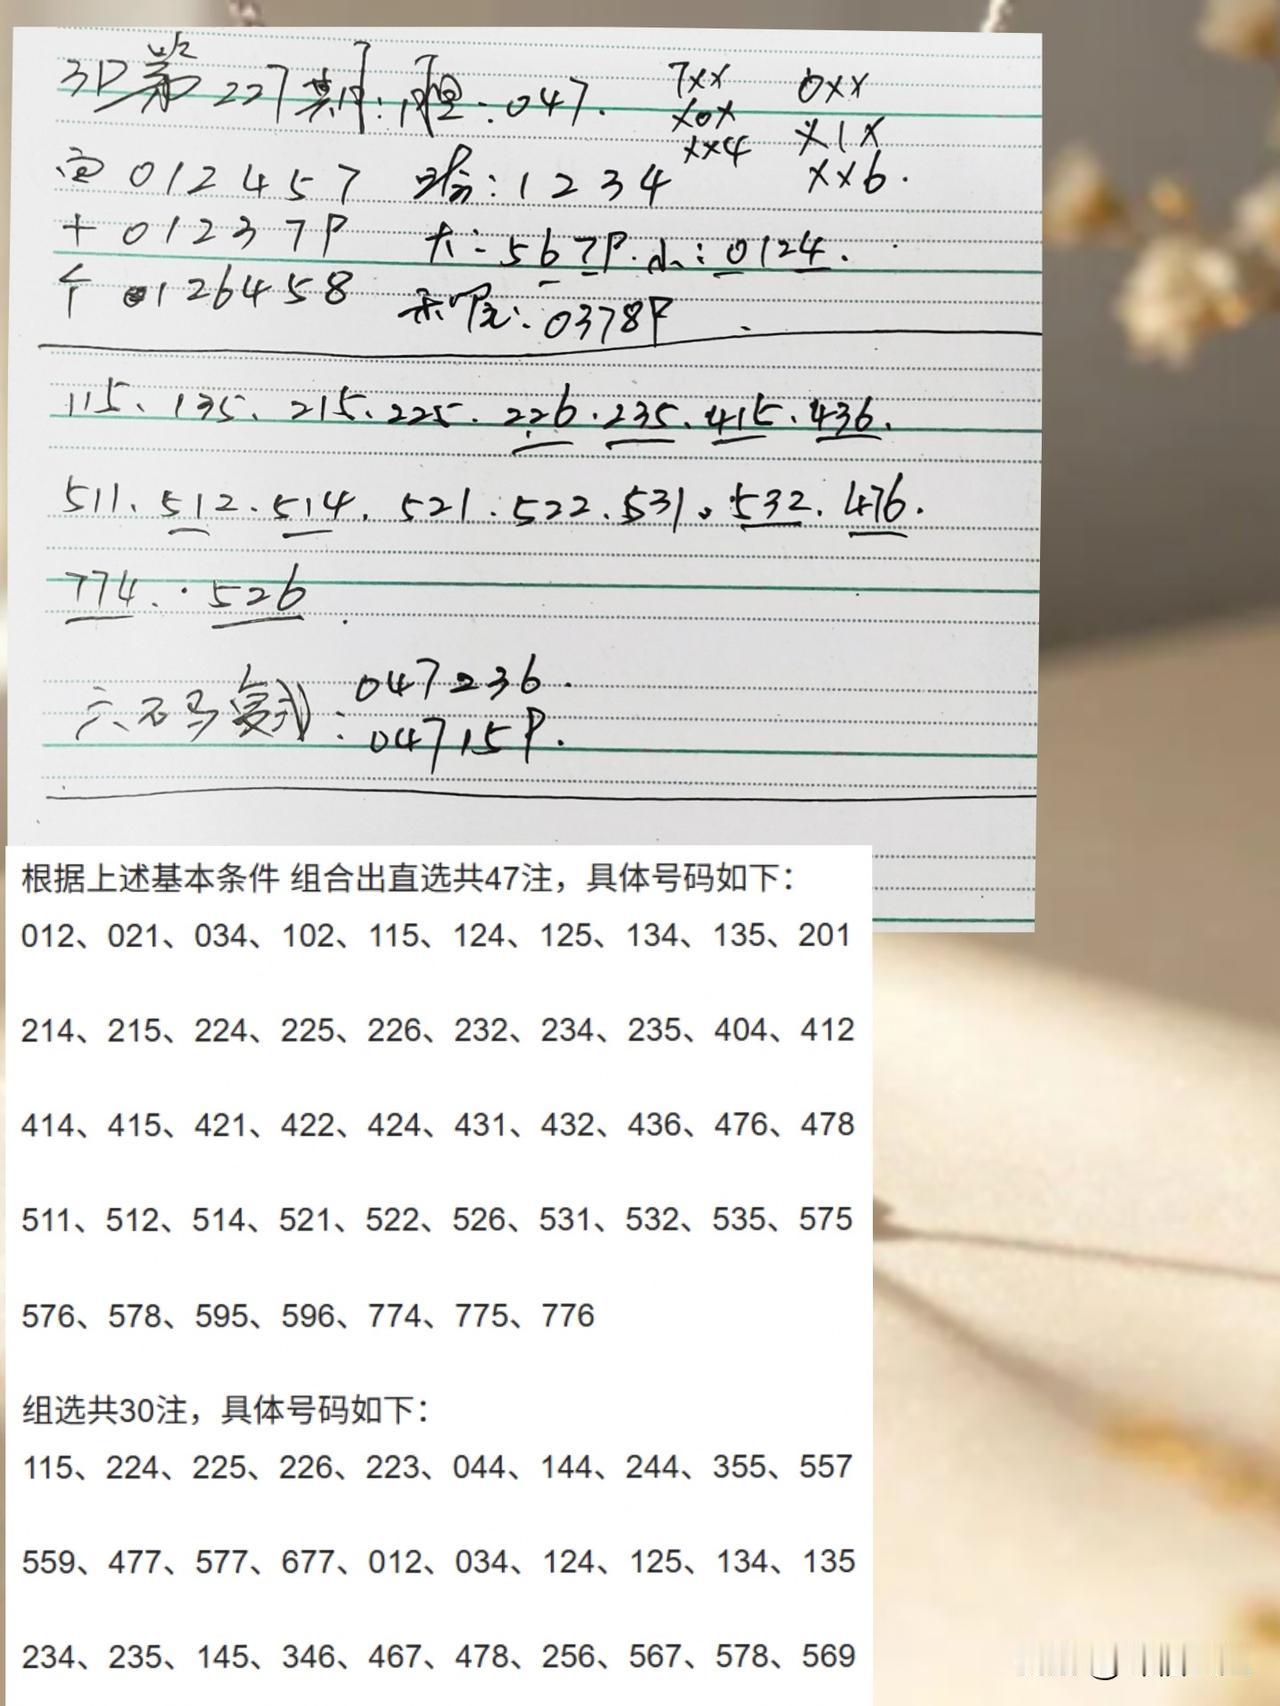 3D第227期:胆:047. 7xx 0xx
x0x x1x
xx4 xx6.
百 012457 跨:1234
十 012379 大:5679.小:0124.
个 0126458 和尾:03789
115、135、215、225.226.235、415、436.
511、512.514.521.522.531.532.476.
774.526.
六不码复式:047236.
047159.
根据上述基本条件 组合出直选共47注，具体号码如下：
012、021、034、102、115、124、125、134、135、201
214、215、224、225、226、232、234、235、404、412
414、415、421、422、424、431、432、436、476、478
511、512、514、521、522、526、531、532、535、575
576、578、595、596、774、775、776
组选共30注，具体号码如下：
115、224、225、226、223、044、144、244、355、557
559、477、577、677、012、034、124、125、134、135
234、235、145、346、467、478、256、567、578、569